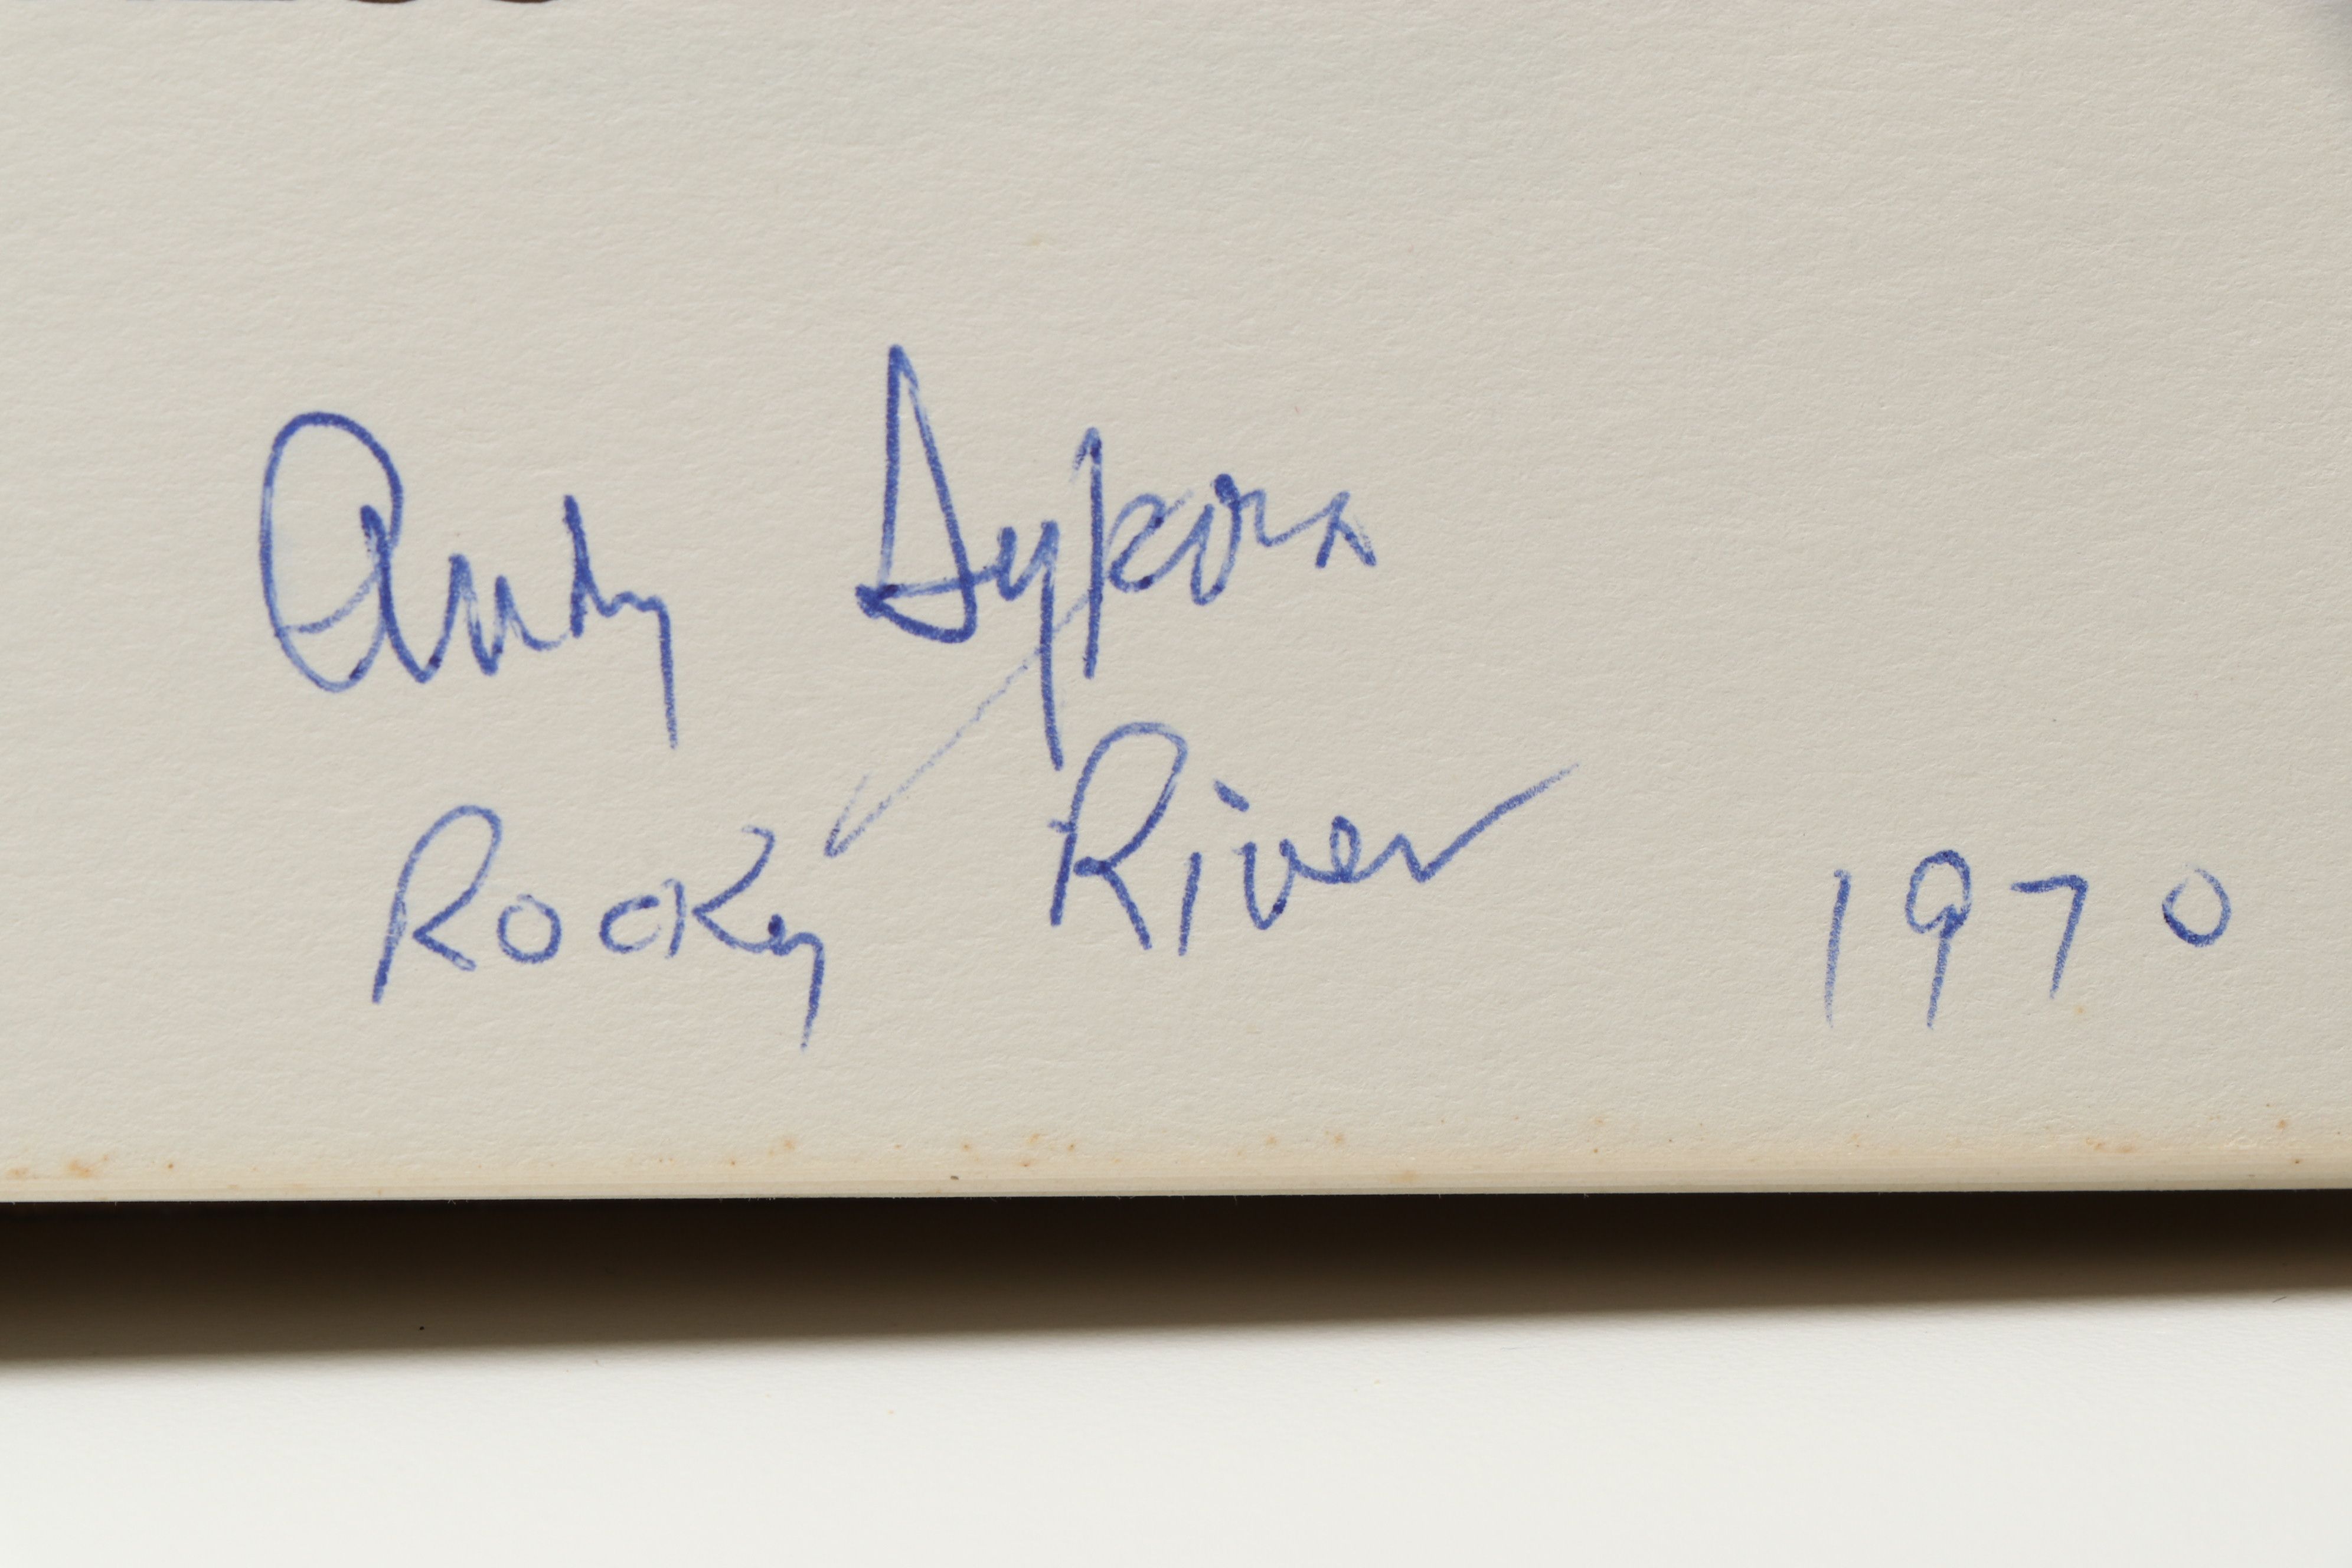 Andy Sykora
Rocky River 1970